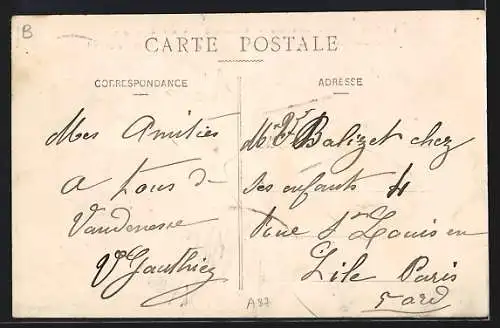 B
CARTE POSTALE
CORRESPONDANCE
ADRESSE
Mes Amitiés
a tous d
Vandenesse
Vve Gauthier
Balizet chez
ses enfants 4
Rue St Louis en
L'ile Paris
A87